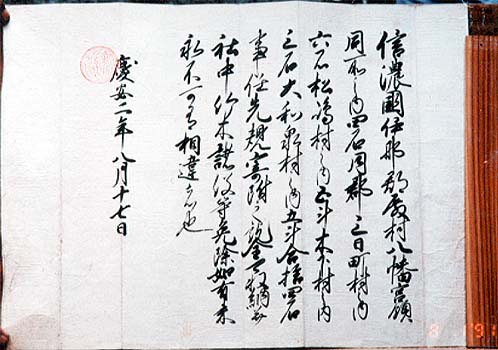 信濃國伊那郡殿村八幡宮領
同所之内四石同郡三日町村之内
六石松嶋村之内五斗木下村之内
三石大和泉村之内五斗合拾四石
事任先規寄附之訖全可収納并
社中竹木諸役等免除如有来
永不可有相違者也
慶安二年八月十七日